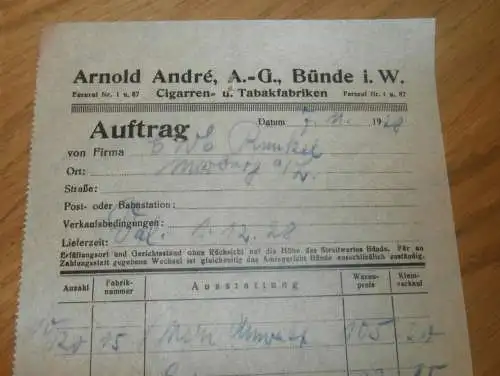 Arnold André, A.-G., Bünde i. W.
Fernruf Nr. 1 u. 87 Cigarren- u. Tabakfabriken Fernruf Nr. 1 u. 87
Auftrag
Datum 7. 11. 1928
von Firma Runkel
Ort: Marburg a/L.
Straße:
Post- oder Bahnstation:
Verkaufsbedingungen:
Lieferzeit: Val. 1.12.28
Erfüllungsort und Gerichtsstand ohne Rücksicht auf die Höhe des Streitwertes Bünde. Für an
Zahlungsstatt gegebene Wechsel ist gleichzeitig das Amtsgericht Bünde ausschließlich zuständig.
Anzahl Fabrik-nummer Ausstattung Waren-preis Klein-verkauf
15 105